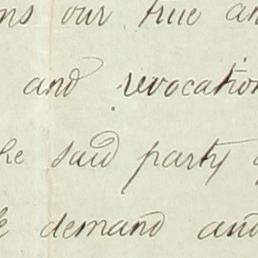 our true
and revocation
said party
demand and